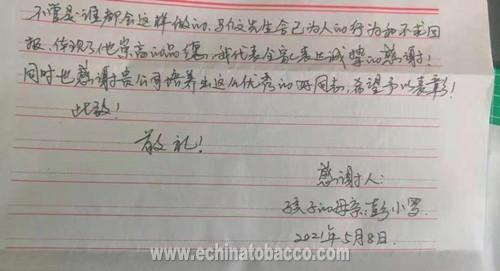 不管是谁都会这样做的。马俊先生舍己为人的行为和不求回
报，体现了他崇高的品德，我代表全家表达诚挚的感谢！
同时也感谢贵公司培养出这么优秀的好同志，希望予以表彰！
此致！
敬礼！
感谢人：
孩子的母亲：彭小罗.
2021年5月8日.
www.echinatobacco.com